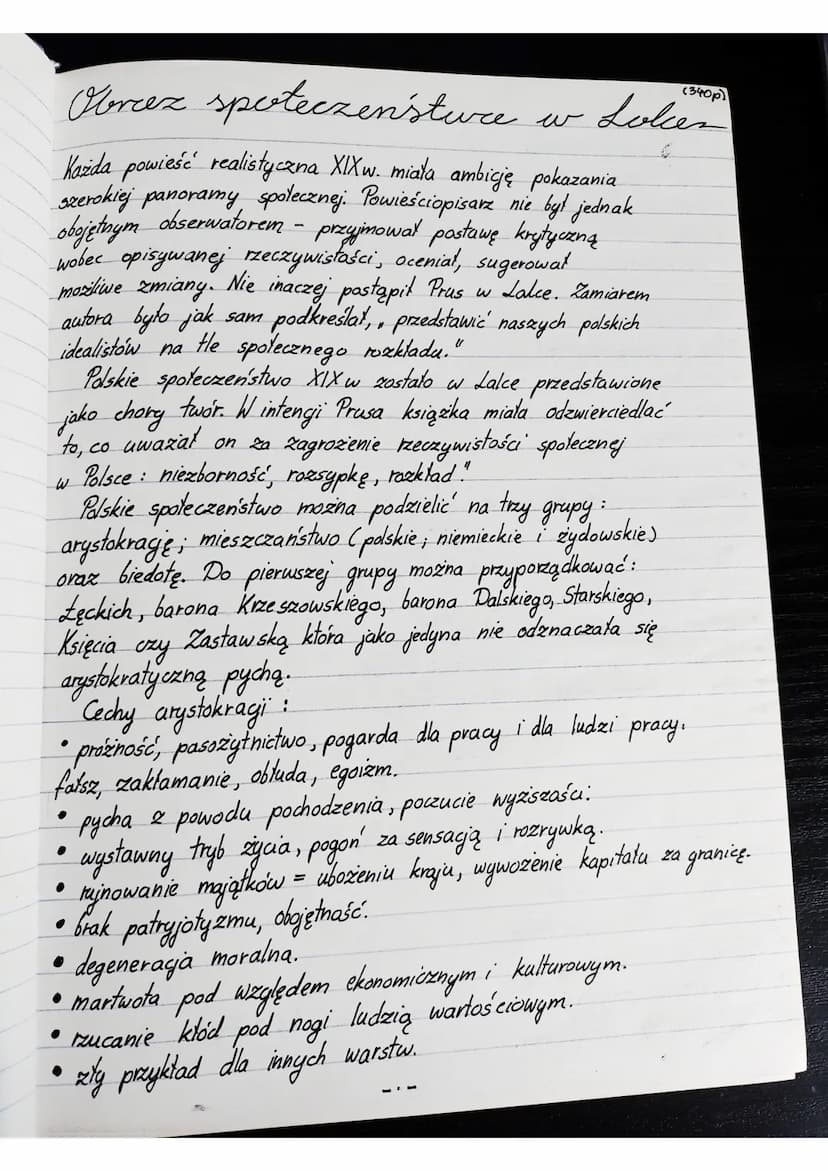 (340p)
Obraz społeczeństwa w Lalce
Każda powieść realistyczna XIXw. miała ambicję pokazania
szerokiej panoramy społecznej. Powieściopisarz nie był jednak
obojętnym obserwatorem – przyjmował postawę krytyczną
wobec opisywanej rzeczywistości, oceniał, sugerował
możliwe zmiany. Nie inaczej postąpił Prus w Lalce. Zamiarem
autora było jak sam podkreślał, „przedstawić naszych polskich
idealistów na tle społecznego rozkładu."
Polskie społeczeństwo XIXw zostało w Lalce przedstawione
jako chory twór. W intengi Prusa książka miała odzwierciedlać
to, co uważał on za zagrożenie rzeczywistości społecznej
w Polsce : niezborność, rozsypkę, rozkład."
Polskie społeczeństwo można podzielić na trzy grupy :
arystokrację; mieszczaństwo (polskie; niemieckie i żydowskie)
oraz biedotę. Do pierwszej grupy można przyporządkować:
Łęckich, barona Krzeszowskiego, barona Dalskiego, Starskiego,
Księcia czy Zasławską która jako jedyna nie odznaczała się
arystokratyczną pychą.
Cechy arystokragi :
• próżność, pasożytnictwo, pogarda dla pracy i dla ludzi pracy.
fałsz, zakłamanie, obłuda, egoizm.
• pycha z powodu pochodzenia, poczucie wyższości.
• wystawny tryb życia, pogoń za sensacją i rozrywką.
• rujnowanie majątków = ubożeniu kraju, wywożenie kapitału za granicę.
• brak patryjotyzmu, obojętność.
• degeneracja moralna.
• martwota pod względem ekonomicznym i kulturowym.
• rzucanie kłód pod nogi ludzią wartościowym.
• zły przykład dla innych warstw.